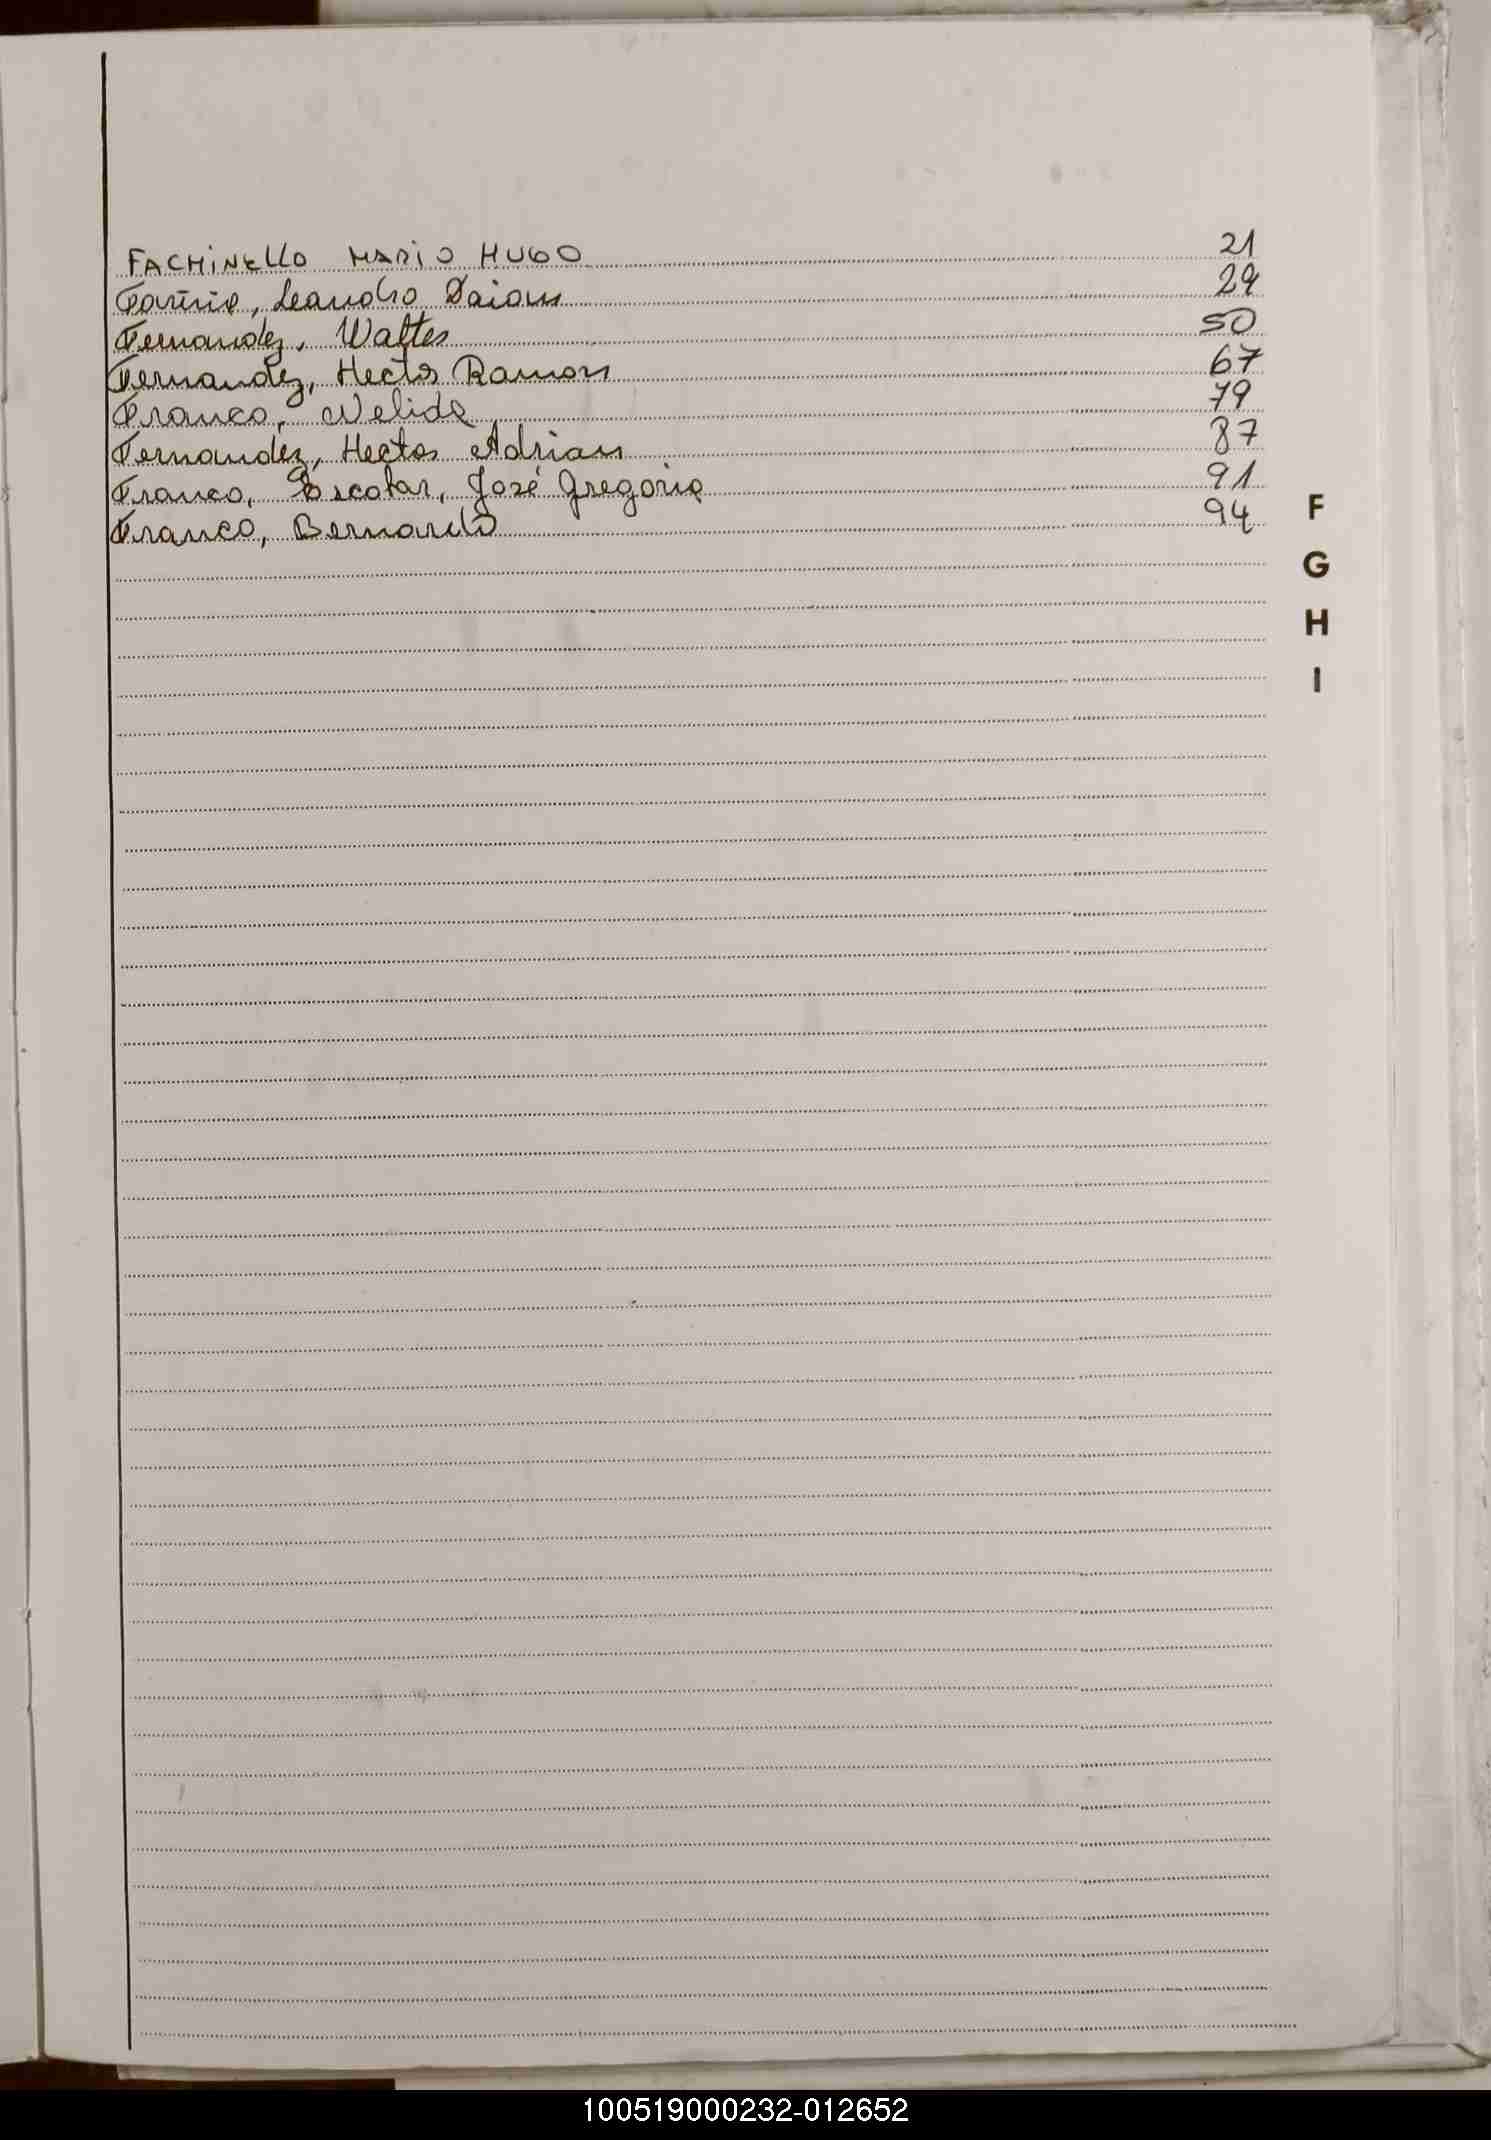 FACHINELLO MARIO HUGO 21
Leandro Daian 29
Fernandez, Walter 50
Fernandez, Hector Ramon 67
Franco, Nelida 79
Fernandez, Hector Adrian 87
Franco, Escobar, José Gregorio 91
Franco, Bernardo 94
F
G
H
I
100519000232-012652